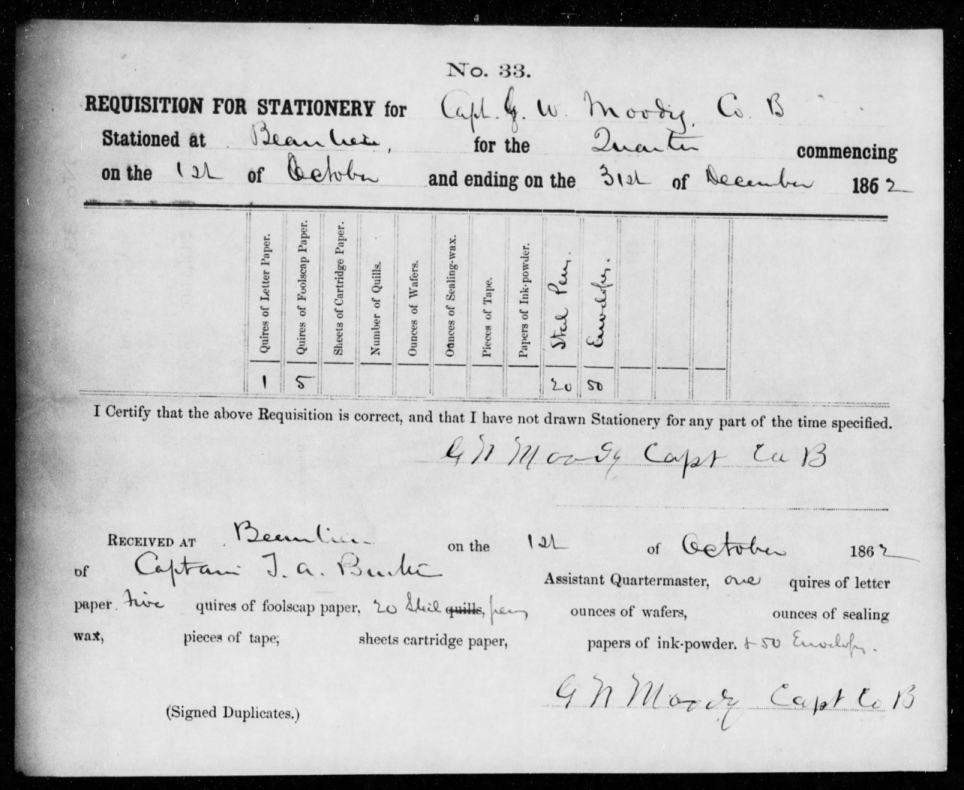 No. 33.
REQUISITION FOR STATIONERY for Capt. G. W. Moody, Co. B
Stationed at Beaulieu, for the Quarter commencing
on the 1st of October and ending on the 31st of December 1862
Quires of Letter Paper.
Quires of Foolscap Paper.
Sheets of Cartridge Paper.
Number of Quills.
Ounces of Wafers.
Ounces of Sealing-wax.
Pieces of Tape.
Papers of Ink-powder.
Steel Pens.
Envelopes.
1 5 20 50
I Certify that the above Requisition is correct, and that I have not drawn Stationery for any part of the time specified.
G W Moody Capt Co B
RECEIVED AT Beaulieu on the 1st of October 1862
of Captain T. A. Burke Assistant Quartermaster, one quires of letter
paper. five quires of foolscap paper, 20 Steel quills, pens ounces of wafers, ounces of sealing
wax, pieces of tape; sheets cartridge paper, papers of ink-powder. & 50 Envelopes.
G W Moody Capt Co B
(Signed Duplicates.)